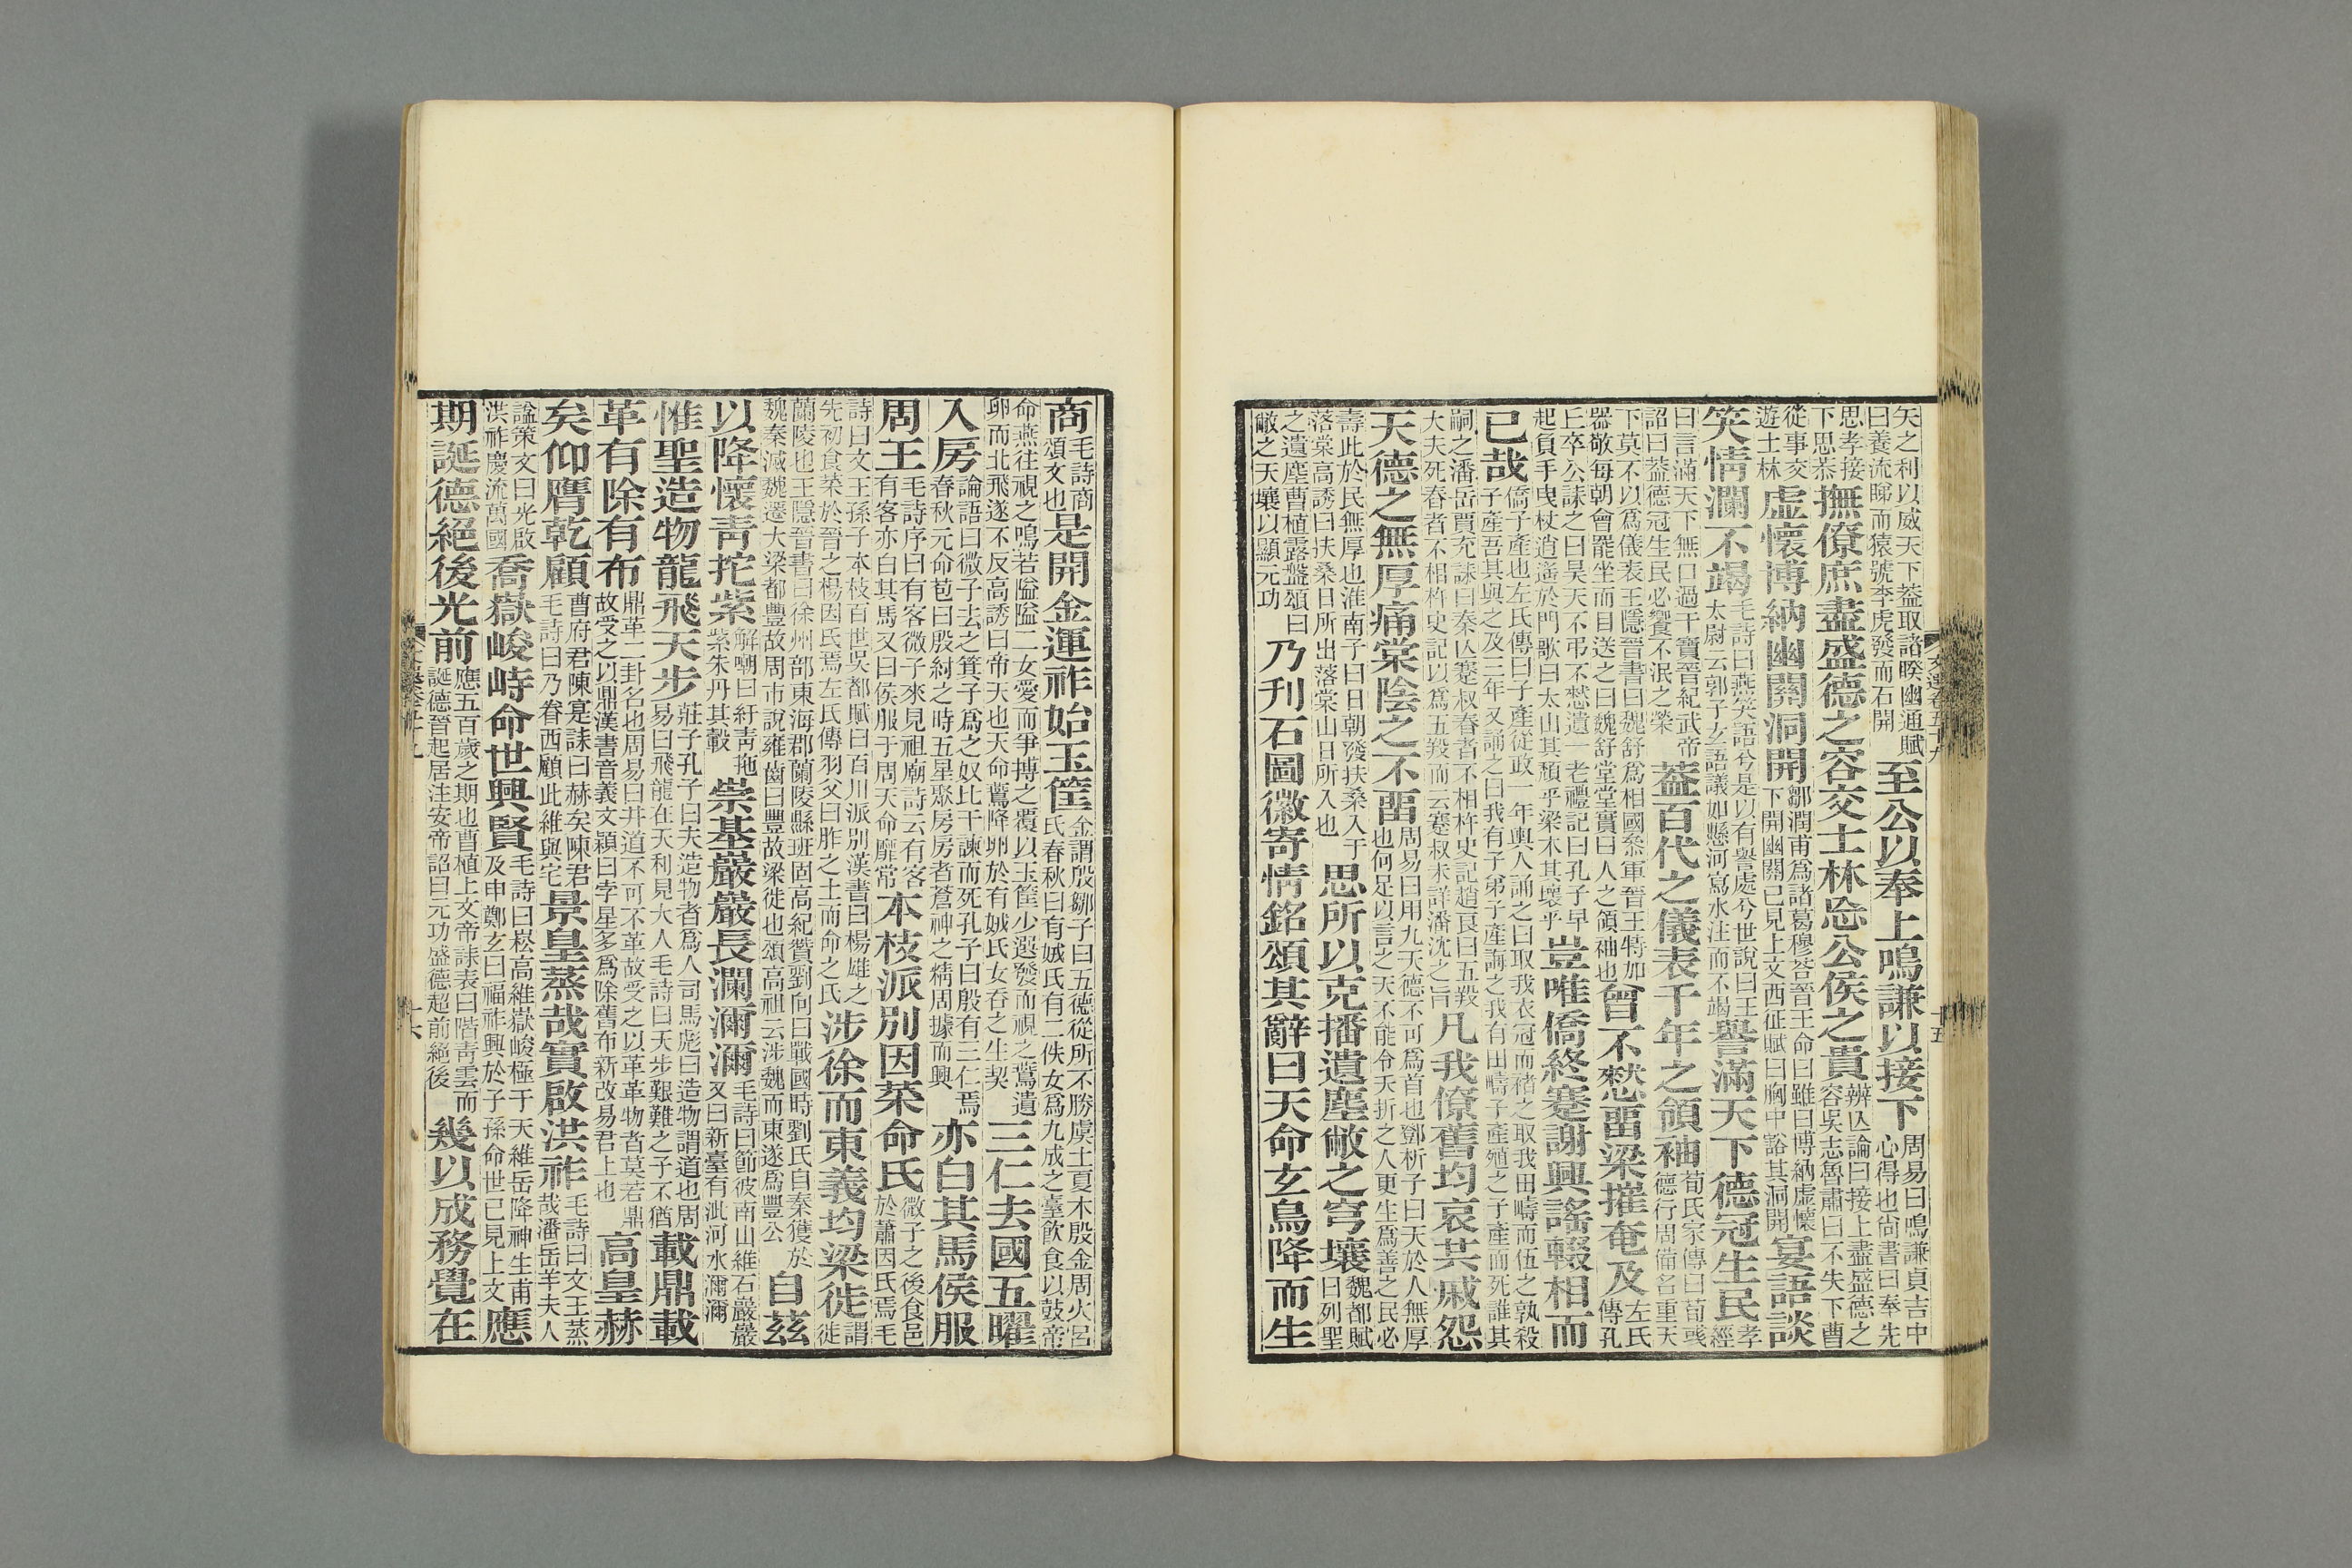 矢之利以威天下蓋取諸睽幽通賦
曰養流睇而猨號李虎發而石開
至公以奉上鳴謙以接下
周易曰鳴謙貞吉中
心得也尙書曰奉先
思孝接
下思恭
撫僚庶盡盛德之容交士林忘公侯之貴
辨亾論曰接上盡盛德之
容吳志魯肅曰不失下曹
從事交
遊士林
虛懷博納幽關洞開
鄒潤甫爲諸葛穆荅晉王命曰雖曰博納虛懷
下開幽關已見上文西征賦曰胸中豁其洞開
宴語談
笑情瀾不竭
毛詩曰燕笑語兮是以有譽處兮世說曰王
太尉云郭子玄語議如懸河寫水注而不竭
譽滿天下德冠生民
孝
經
曰言滿天下無口過干寶晉紀武帝
詔曰蓋德冠生民必饗不泯之榮
蓋百代之儀表千年之領袖
荀氏家傳曰荀彧
德行周備名重天
下莫不以爲儀表王隱晉書曰魏舒爲相國叅軍晉王特加
器敬每朝會罷坐而目送之曰魏舒堂堂實曰人之領袖也
曾不憖畱梁摧奄及
左氏
傳孔
丘卒公誄之曰旻天不弔不憖遺一老禮記曰孔子早
起負手曳杖逍遙於門歌曰太山其頹乎梁木其壞乎
豈唯僑終蹇謝興謠輟相而
已哉
僑子產也左氏傳曰子產從政一年輿人誦之曰取我衣冠而禇之取我田疇而伍之孰殺
子產吾其與之及三年又誦之曰我有子弟子產誨之我有田疇子產殖之子產而死誰其
嗣之潘岳賈充誄曰秦亾蹇叔舂者不相杵史記趙良曰五羖
大夫死舂者不相杵史記以爲五羖而云蹇叔未詳潘沈之旨
凡我僚舊均哀共戚怨
天德之無厚痛棠陰之不畱
周易曰用九天德不可爲首也鄧析子曰天於人無厚
也何足以言之天不能令夭折之人更生爲善之民必
壽此於民無厚也淮南子曰日朝發扶桑入于
落棠高誘曰扶桑日所出落棠山日所入也
思所以克播遺塵敝之穹壤
魏都賦
曰列聖
之遺塵曹植露盤頌曰
敝之天壤以顯元功
乃刊石圖徽寄情銘頌其辭曰天命玄鳥降而生
商
毛詩商
頌文也
是開金運祚始玉筐
金謂殷鄒子曰五德從所不勝虞土夏木殷金周火呂
氏春秋曰有娀氏有二佚女爲九成之臺飲食以鼓帝
命燕往視之鳴若隘隘二女愛而爭搏之覆以玉筐少選發而視之鷰遺
卵而北飛遂不反高誘曰帝天也天命鷰降卵於有娀氏女吞之生契
三仁去國五曜
入房
論語曰微子去之箕子爲之奴比干諫而死孔子曰殷有三仁焉
春秋元命苞曰殷紂之時五星聚房房者蒼神之精周據而興
亦白其馬侯服
周王
毛詩序曰有客微子來見祖廟詩云有客
有客亦白其馬又曰侯服于周天命靡常
本枝派別因菜命氏
微子之後食邑
於蕭因氏焉毛
詩曰文王孫子本枝百世吳都賦曰百川派別漢書曰楊雄之
先初食菜於晉之楊因氏焉左氏傳羽父曰胙之土而命之氏
涉徐而東義均梁徙
謂
徙
蘭陵也王隱晉書曰徐州部東海郡蘭陵縣班固高紀贊劉向曰戰國時劉氏自秦獲於
魏秦滅魏遷大梁都豐故周市說雍齒曰豐故梁徙也頌高祖云涉魏而東遂爲豐公
自茲
以降懷靑拕紫
解嘲曰紆靑拖
紫朱丹其轂
崇基巖巖長瀾瀰瀰
毛詩曰節彼南山維石巖巖
又曰新臺有泚河水瀰瀰
惟聖造物龍飛天步
莊子孔子曰夫造物者爲人司馬彪曰造物謂道也周
易曰飛龍在天利見大人毛詩曰天步艱難之子不猶
載鼎載
革有除有布
鼎革二卦名也周易曰井道不可不革故受之以革革物者莫若鼎
故受之以鼎漢書音義文穎曰孛星多爲除舊布新改易君上也
高皇赫
矣仰膺乾顧
曹府君陳寔誄曰赫矣陳君
毛詩曰乃眷西顧此維與宅
景皇蒸哉實啟洪祚
毛詩曰文王蒸
哉潘岳羊夫人
謚策文曰光啟
洪祚慶流萬國
喬嶽峻峙命世興賢
毛詩曰崧高維嶽峻極于天維岳降神生甫
及申鄭玄曰福祚興於子孫命世已見上文
應
期誕德絕後光前
應五百歲之期也曹植上文帝誄表曰階靑雲而
誕德晉起居注安帝詔曰元功盛德超前絕後
幾以成務覺在